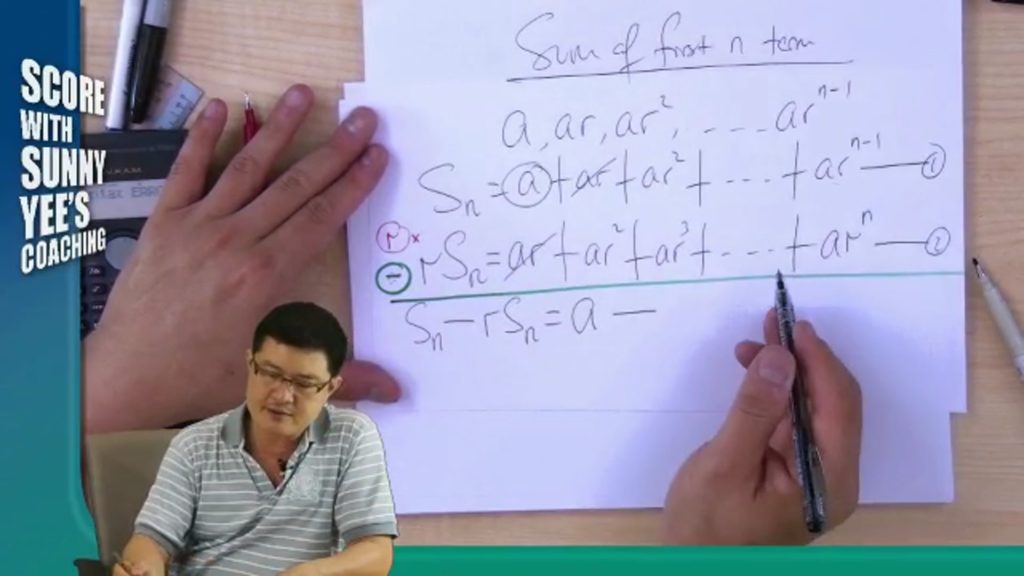 SCORE
WITH
SUNNY
YEE'S
COACHING
Sum of first n term
a, ar, ar², ---- arⁿ⁻¹
Sₙ = a + ar + ar² + ---- + arⁿ⁻¹ — ①
r × rSₙ = ar + ar² + ar³ + ---- + arⁿ — ②
−
Sₙ − rSₙ = a −